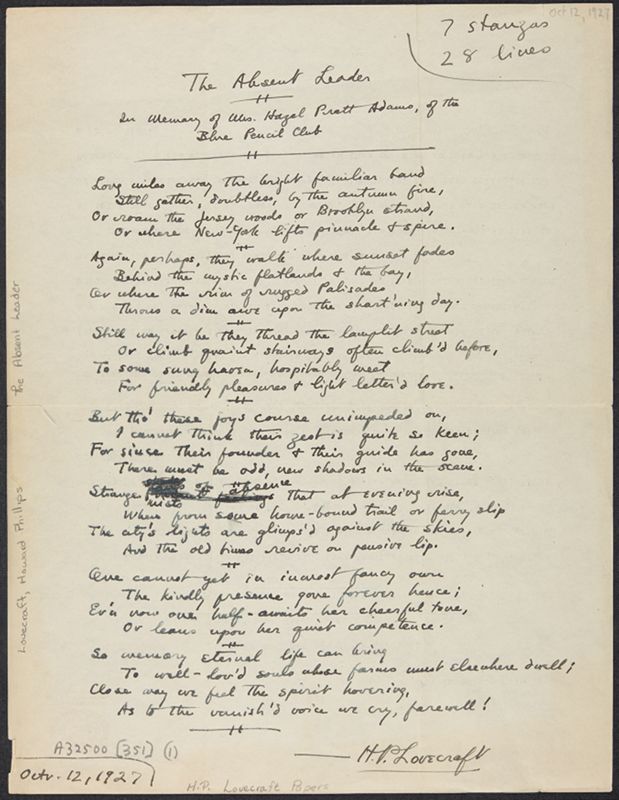 Oct 12, 1927
7 stanzas
28 lines
The Absent Leader
In Memory of Mrs. Hazel Pratt Adams, of the
Blue Pencil Club
Long miles away the bright familiar band
Still gather, doubtless, by the autumn fire,
Or roam the Jersey woods or Brooklyn strand,
Or where New-York lifts pinnacle & spire.
Again, perhaps, they walk where sunset fades
Behind the mystic flatlands & the bay,
Or where the rim of rugged Palisades
Throws a dim awe upon the short'ning day.
Still may it be they thread the lamplit street
Or climb quaint stairways often climb'd before,
To some snug haven, hospitably meet
For friendly pleasures & light letter'd lore.
But tho' these joys course unimpeded on,
I cannot think their zest is quite so keen;
For since their founder & their guide has gone,
There must be odd, new shadows in the scene.
Strange mists of absence that at evening rise,
When from some home-bound trail or ferry slip
The city's lights are glimps'd against the skies,
And the old times revive on pensive lip.
One cannot yet in inmost fancy own
The kindly presence gone forever hence;
Ev'n now one half-awaits her cheerful tone,
Or leans upon her quiet competence.
So memory eternal life can bring
To well-lov'd souls whose forms must elsewhere dwell;
Close may we feel the spirit hovering,
As to the vanish'd voice we cry, farewell!
H.P. Lovecraft
A32500 [351] (1)
Octr. 12, 1927
H.P. Lovecraft Papers
Lovecraft, Howard Phillips The Absent Leader